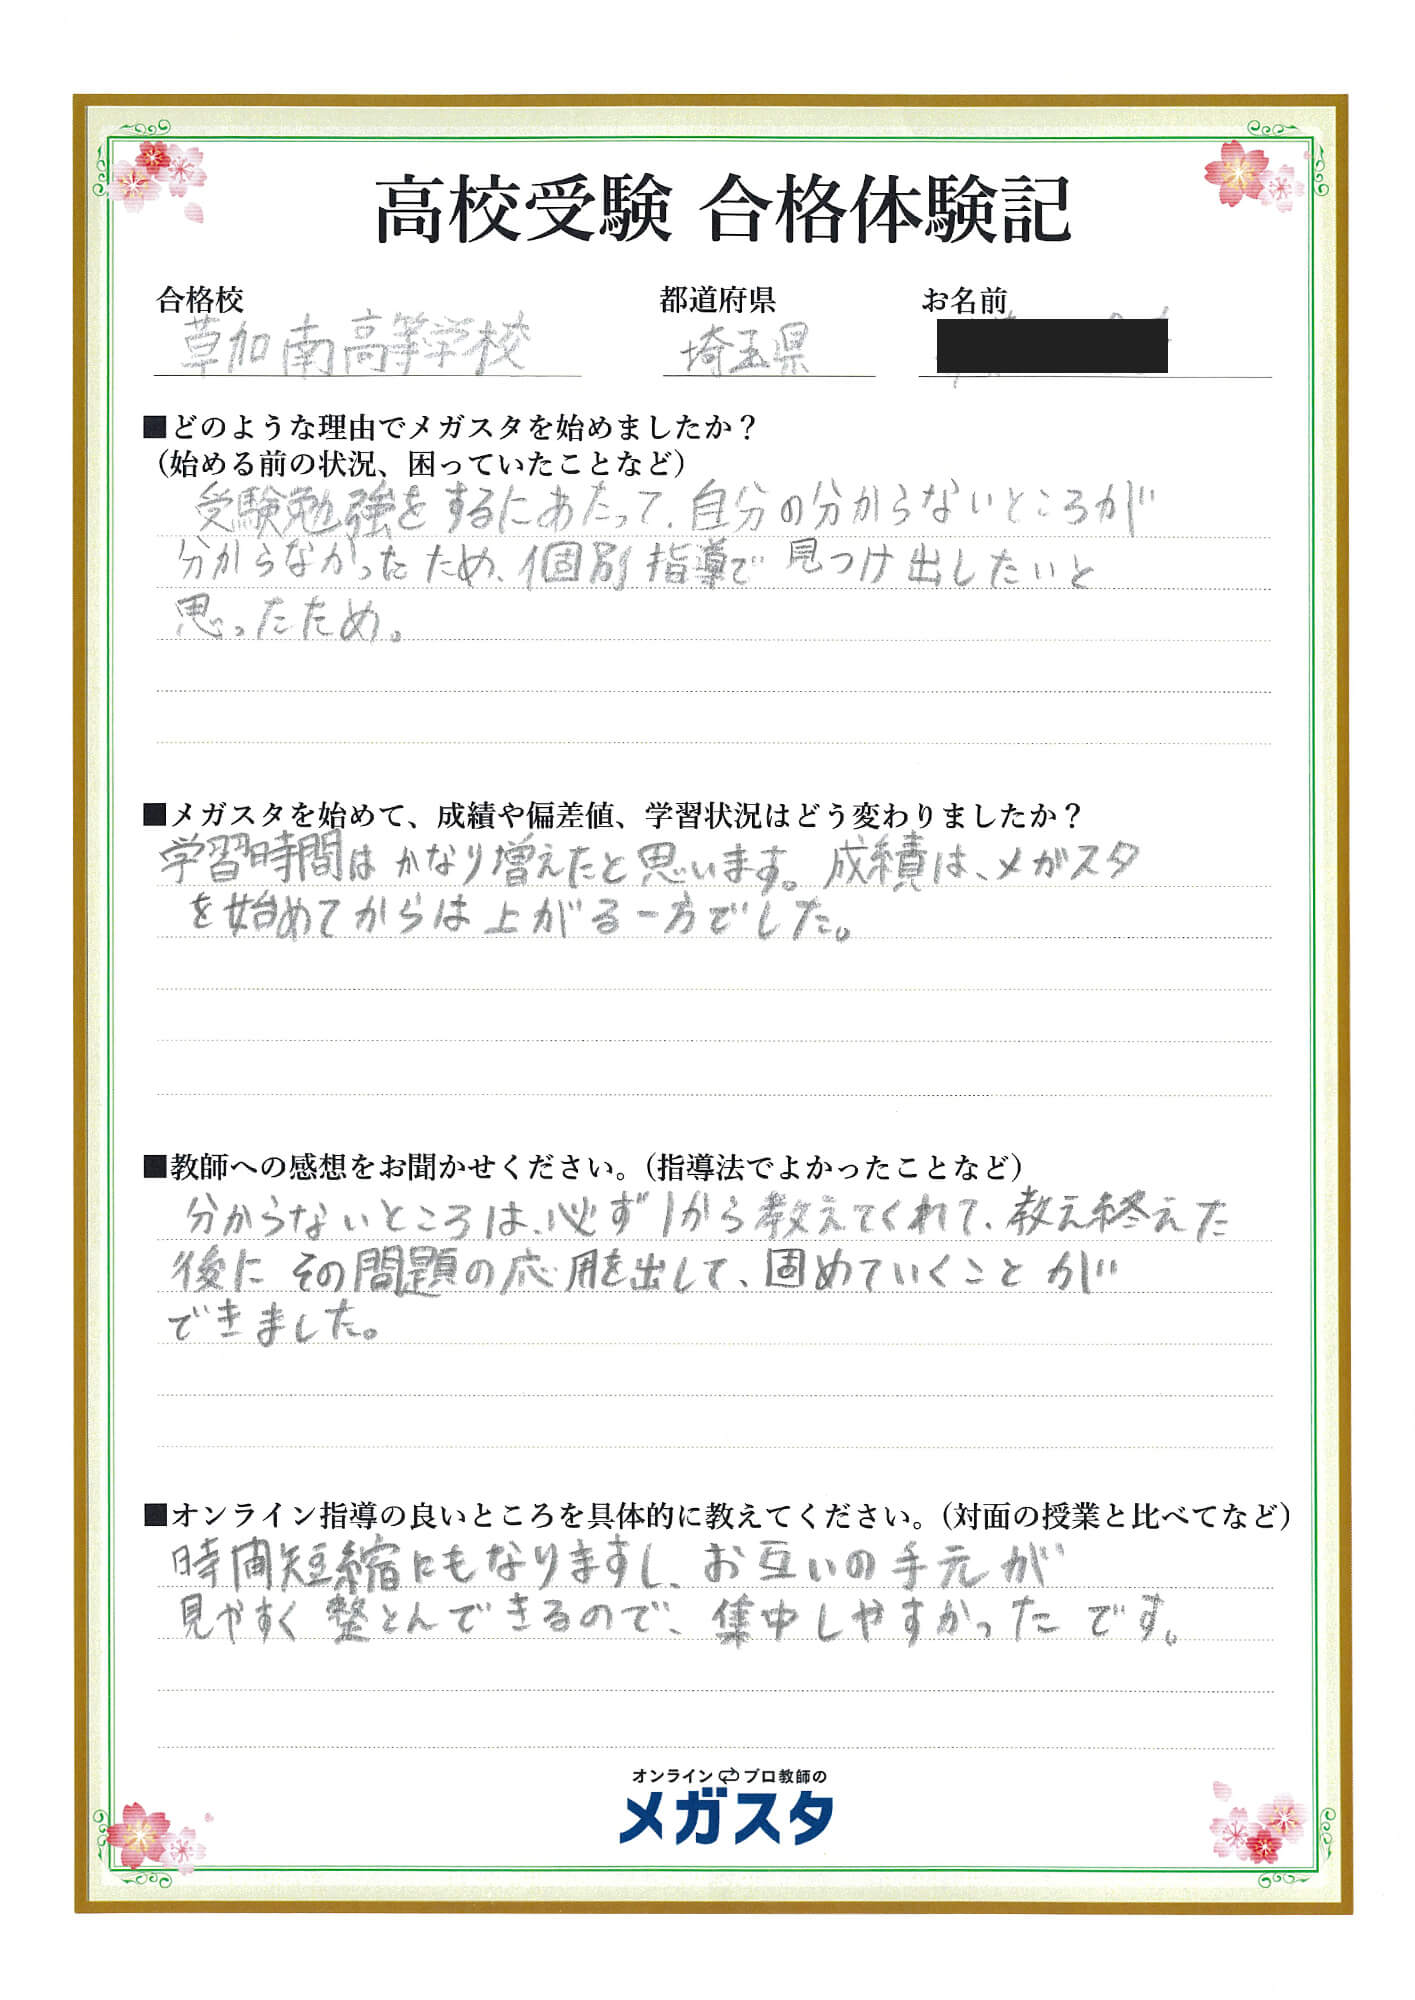 高校受験 合格体験記
合格校 都道府県 お名前
草加南高等学校 埼玉県
■どのような理由でメガスタを始めましたか？
（始める前の状況、困っていたことなど）
受験勉強をするにあたって、自分の分からないところが
分からなかったため、個別指導で見つけ出したいと
思ったため。
■メガスタを始めて、成績や偏差値、学習状況はどう変わりましたか？
学習時間はかなり増えたと思います。成績は、メガスタ
を始めてからは上がる一方でした。
■教師への感想をお聞かせください。（指導法でよかったことなど）
分からないところは、必ず1から教えてくれて、教え終えた
後にその問題の応用を出して、固めていくことが
できました。
■オンライン指導の良いところを具体的に教えてください。（対面の授業と比べてなど）
時間短縮にもなりますし、お互いの手元が
見やすく整とんできるので、集中しやすかったです。
オンライン プロ教師の
メガスタ